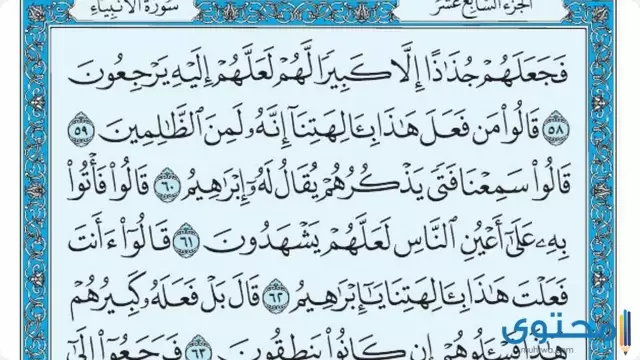 الجزء السابع عشر
سورة الأنبياء
فَجَعَلَهُمْ جُذَٰذًا إِلَّا كَبِيرًا لَّهُمْ لَعَلَّهُمْ إِلَيْهِ يَرْجِعُونَ
٥٨ قَالُوا۟ مَن فَعَلَ هَٰذَا بِـَٔالِهَتِنَآ إِنَّهُۥ لَمِنَ ٱلظَّٰلِمِينَ ٥٩
قَالُوا۟ سَمِعْنَا فَتًى يَذْكُرُهُمْ يُقَالُ لَهُۥٓ إِبْرَٰهِيمُ ٦٠ قَالُوا۟ فَأْتُوا۟
بِهِۦ عَلَىٰٓ أَعْيُنِ ٱلنَّاسِ لَعَلَّهُمْ يَشْهَدُونَ ٦١ قَالُوٓا۟ ءَأَنتَ
فَعَلْتَ هَٰذَا بِـَٔالِهَتِنَا يَٰٓإِبْرَٰهِيمُ ٦٢ قَالَ بَلْ فَعَلَهُۥ كَبِيرُهُمْ
هَٰذَا فَسْـَٔلُوهُمْ إِن كَانُوا۟ يَنطِقُونَ ٦٣ فَرَجَعُوٓا۟ إِلَىٰٓ
محتوى
muhtwa.com